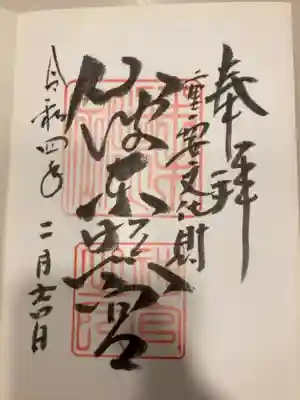 奉拝
重要文化財
仙波東照宮
令和四年 二月